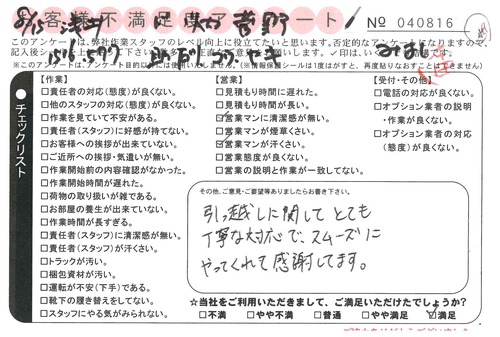 お客様不満足度アンケート
No 040816
このアンケートは、弊社作業スタッフのレベル向上に役立てたいと思います。否定的なアンケートになりますので、
※このアンケートは、アンケート目的以外には使いません。(※情報保護シールは1度はがすと、再度貼りなおすことはできません)
チェックリスト
【作業】
□責任者の対応(態度)が良くない。
□他のスタッフの対応(態度)が良くない。
□作業を見ていて不安がある。
□責任者(スタッフ)に好感が持てない。
□お客様への挨拶が出来ていない。
□ご近所への挨拶・気遣いが無い。
□作業開始前の内容確認がなかった。
□作業開始時間が遅れた。
□荷物の取り扱いが雑である。
□お部屋の養生が出来ていない。
□作業時間が長すぎる。
□責任者(スタッフ)に清潔感が無い。
□責任者(スタッフ)が汗くさい。
□トラックが汚い。
□梱包資材が汚い。
□運転が不安(下手)である。
□靴下の履き替えをしてない。
□スタッフにやる気がみられない。
【営業】
□見積もり時間に遅れた。
□見積もり時間が長い。
□営業マンに清潔感が無い。
□営業マンが煙草くさい。
□営業マンが汗くさい。
□営業態度が良くない。
□営業の説明と作業が一致してない。
【受付・その他】
□電話の対応が良くない。
□オプション業者の説明
・作業が良くない。
□オプション業者の対応
(態度)が良くない。
その他、ご意見・ご要望等ありましたらお書き下さい。
引っ越しに関してとても
丁寧な対応で、スムーズに
やってくれて感謝してます。
☆当社をご利用いただきまして、ご満足いただけたでしょうか?
□不満 □やや不満 □普通 □やや満足 ☑満足